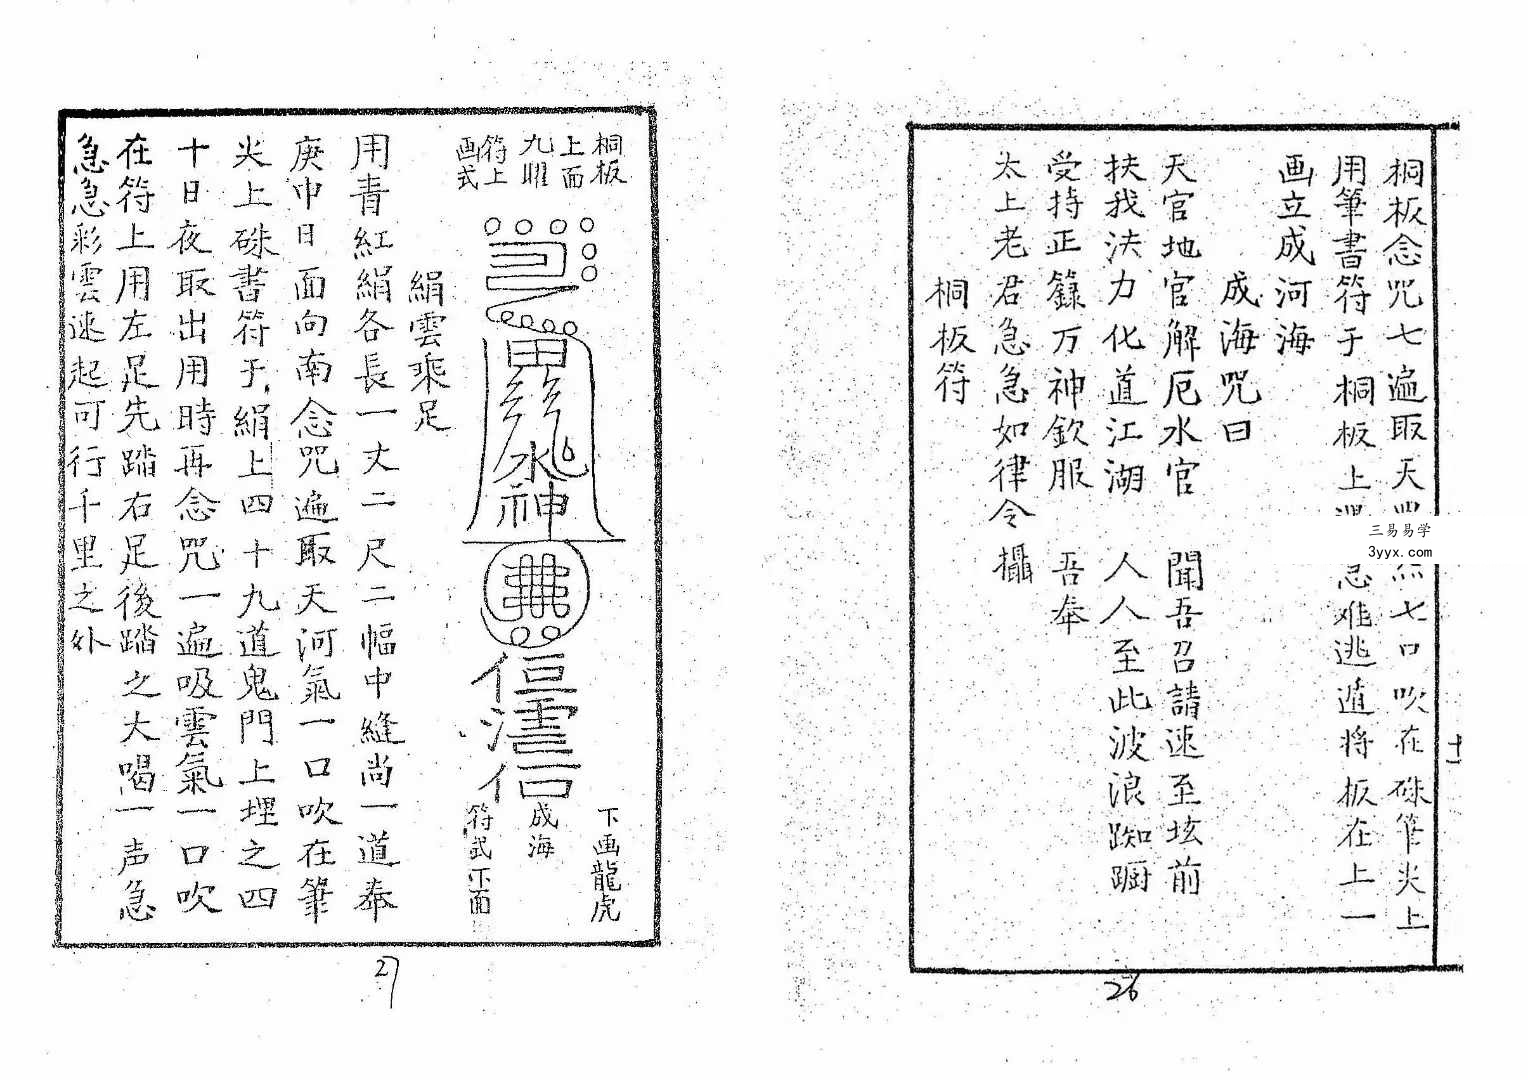 桐板念咒七遍取天
七口吹在硃筆尖上
用筆書符于桐板上
急难逃遁将板在上一
画立成河海
成海咒曰
天官地官解厄水官 聞吾召請速至坛前
扶我法力化道江湖 人人至此波浪踟蹰
受持正籙万神欽服 吾奉
太上老君急急如律令 攝
桐板符
十
26
三易易学
3yyx.com
桐板
上面
九曜
符上
画式
水神
下画龍虎
成海
符式下面
絹雲乘足
用青紅絹各長一丈二尺二幅中縫尚一道奉
庚申日面向南念咒遍取天河氣一口吹在筆
尖上硃書符于絹上四十九道鬼門上埋之四
十日夜取出用時再念咒一遍吸雲氣一口吹
在符上用左足先踏右足後踏之大喝一声急
急急彩雲速起可行千里之外
27